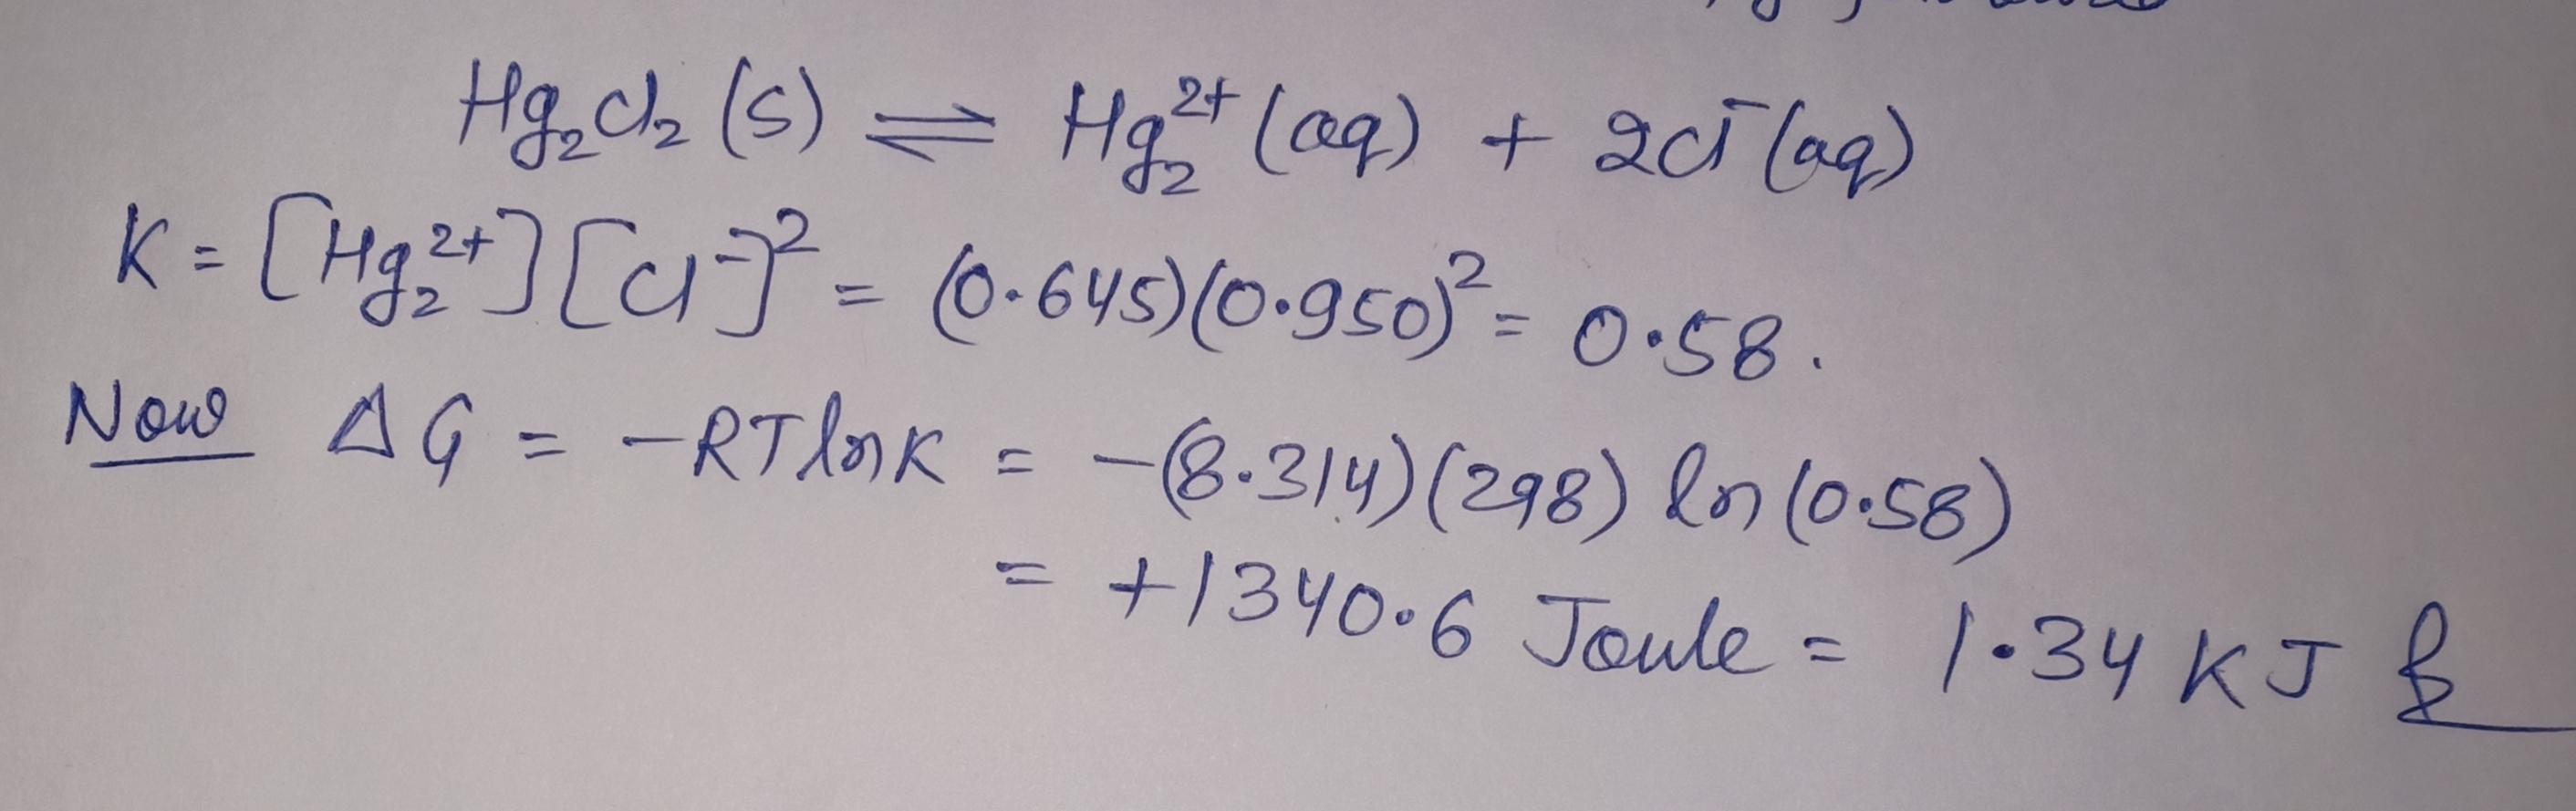 Hg₂Cl₂ (s) ⇌ Hg₂²⁺ (aq) + 2Cl⁻ (aq)
K = [Hg₂²⁺] [Cl⁻]² = (0.645)(0.950)² = 0.58.
Now ΔG = -RT ln K = -(8.314)(298) ln (0.58)
= +1340.6 Joule = 1.34 KJ